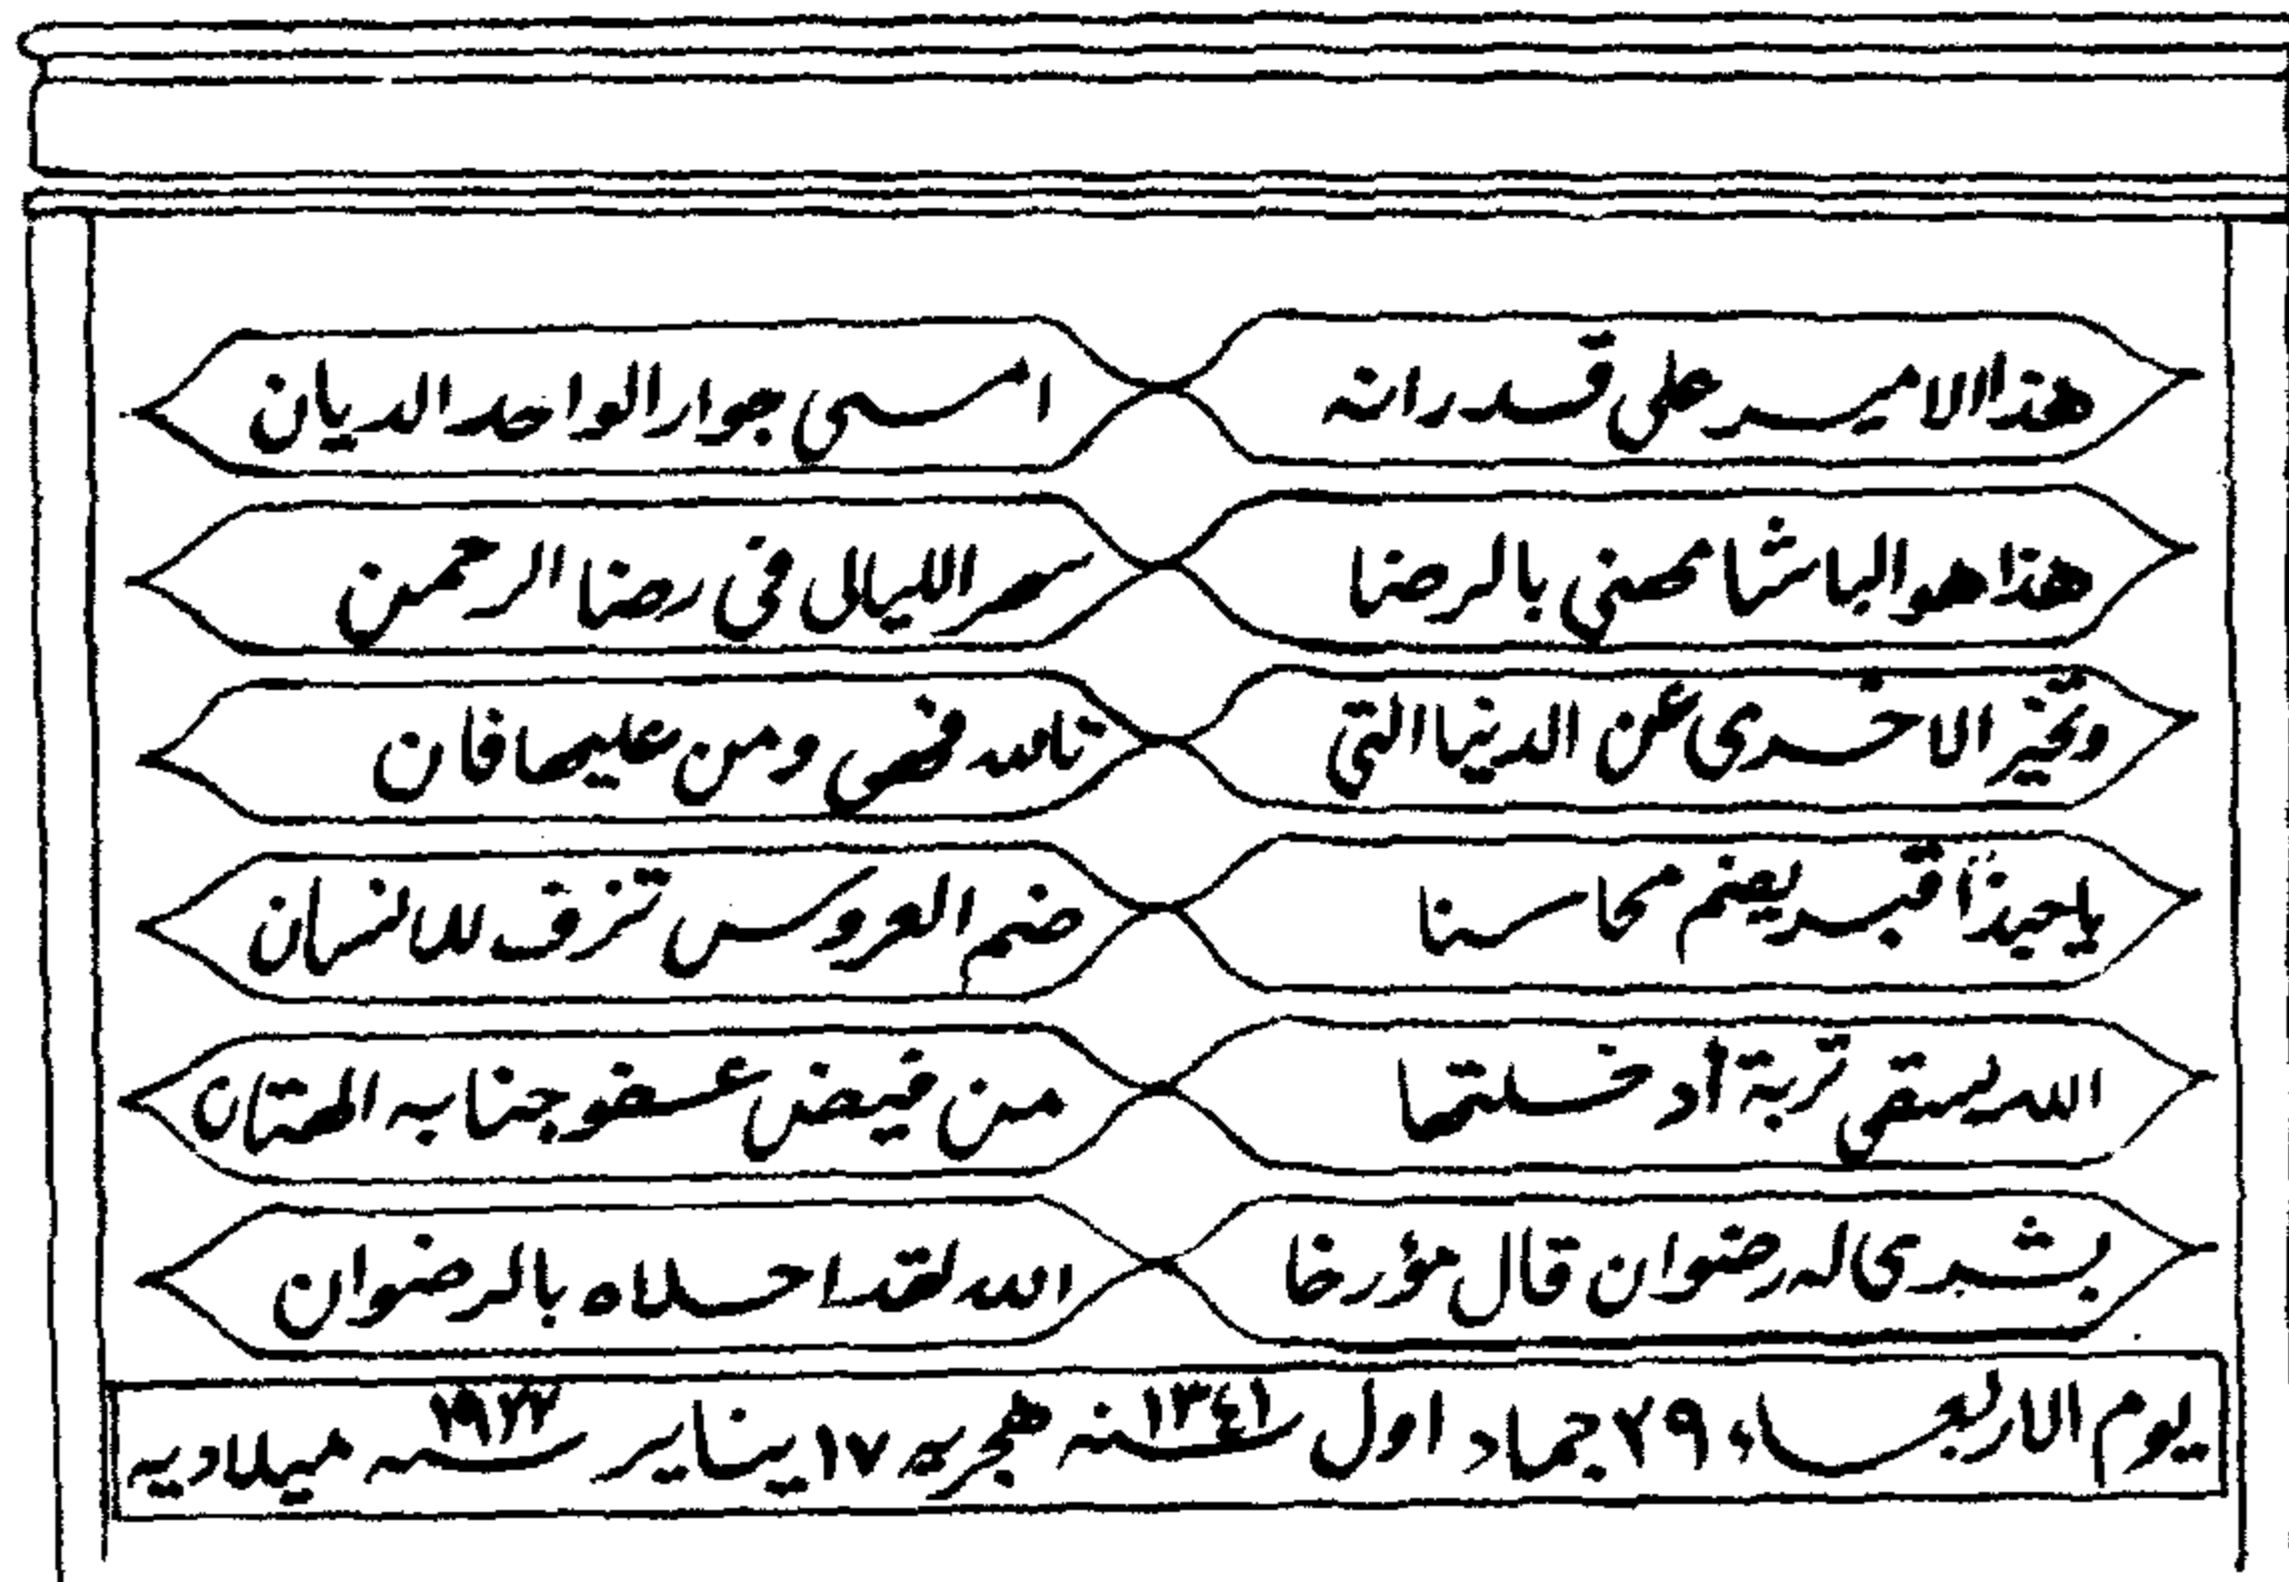 هذا الامير على قدر انه امسى جوار الواحد الديان
هذا هو الباشا مهنى بالرضا سهر الليالى فى رضا الرحمن
وتخير الاخرى عن الدنيا التى تالله فهى ومن عليها فان
يا حبذا قبر يضم محاسنا ضم العروس تزف للانسان
الله يسقى تربة أدخلتها من فيض عفو جنابه الهتان
بشرى له رضوان قال مؤرخا الله لقد احلاه بالرضوان
يوم الاربعاء ٢٩ جماد اول سنه ١٣٤١ هجريه ١٧ يناير سنه ميلاديه